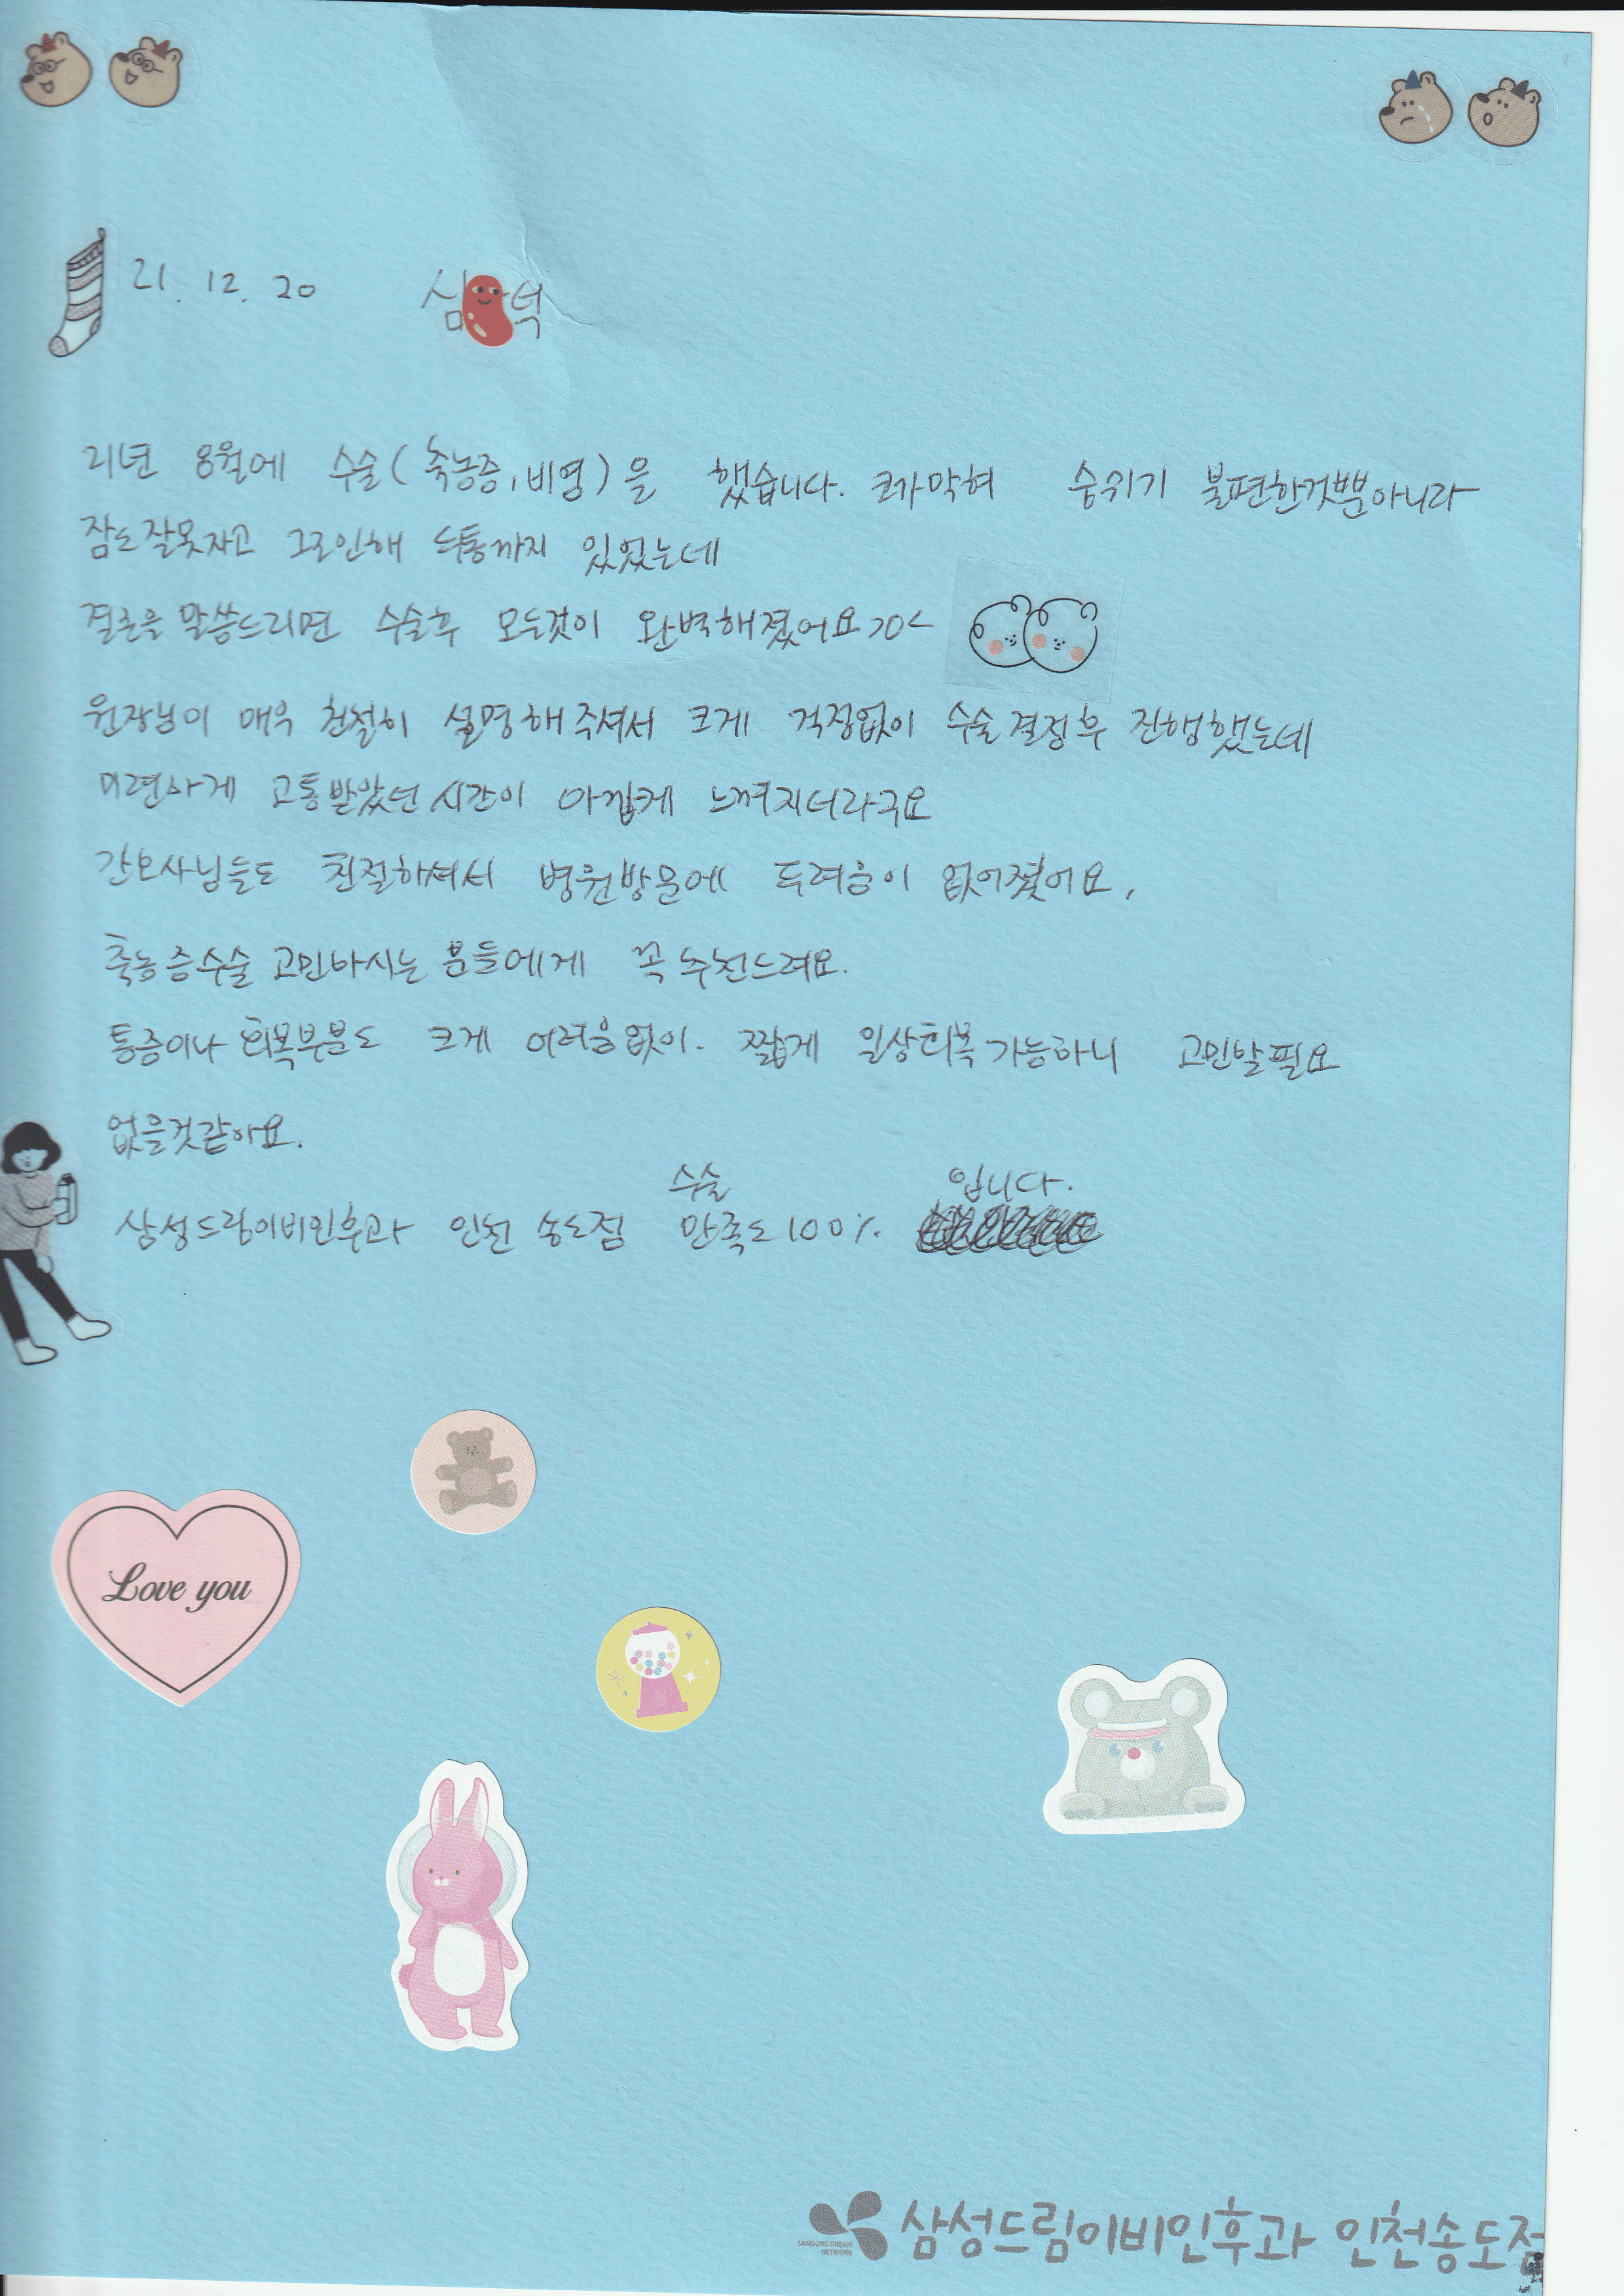 21. 12. 20 심 덕
21년 8월에 수술(축농증, 비염)을 했습니다. 코가막혀 숨쉬기 불편한것뿐아니라
잠도잘못자고 그로인해 두통까지 있었는데
결론을 말씀드리면 수술후 모든것이 완벽해졌어요>0<
원장님이 매우 친절히 설명해주셔서 크게 걱정없이 수술결정후 진행했는데
미련하게 고통받았던 시간이 아깝게 느껴지더라구요
간호사님들도 친절하셔서 병원방문에 두려움이 없어졌어요.
축농증수술 고민하시는 분들에게 꼭 추천드려요.
통증이나 회복부분도 크게 어려움없이. 짧게 일상회복가능하니 고민할필요
없을것같아요.
수술 입니다.
삼성드림이비인후과 인천 송도점 만족도100%
Love you
삼성드림이비인후과 인천송도점
SAMSUNG DREAM
NETWORK